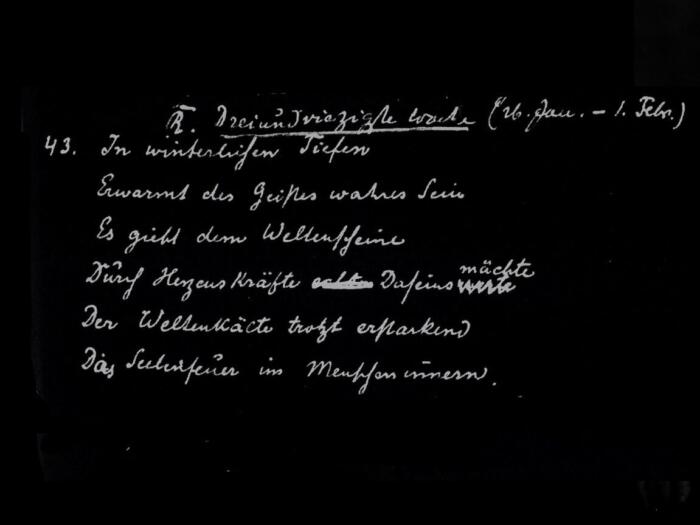 R. Dreiundvierzigste Woche (26. Jan. - 1. Febr.)
43. In winterlichen Tiefen
Erwarmt des Geistes wahres Sein
Es giebt dem Weltenscheine
Durch Herzenskräfte Daseinsmächte
Der Weltenkälte trotzt erstarkend
Das Seelenfeuer im Menscheninnern.